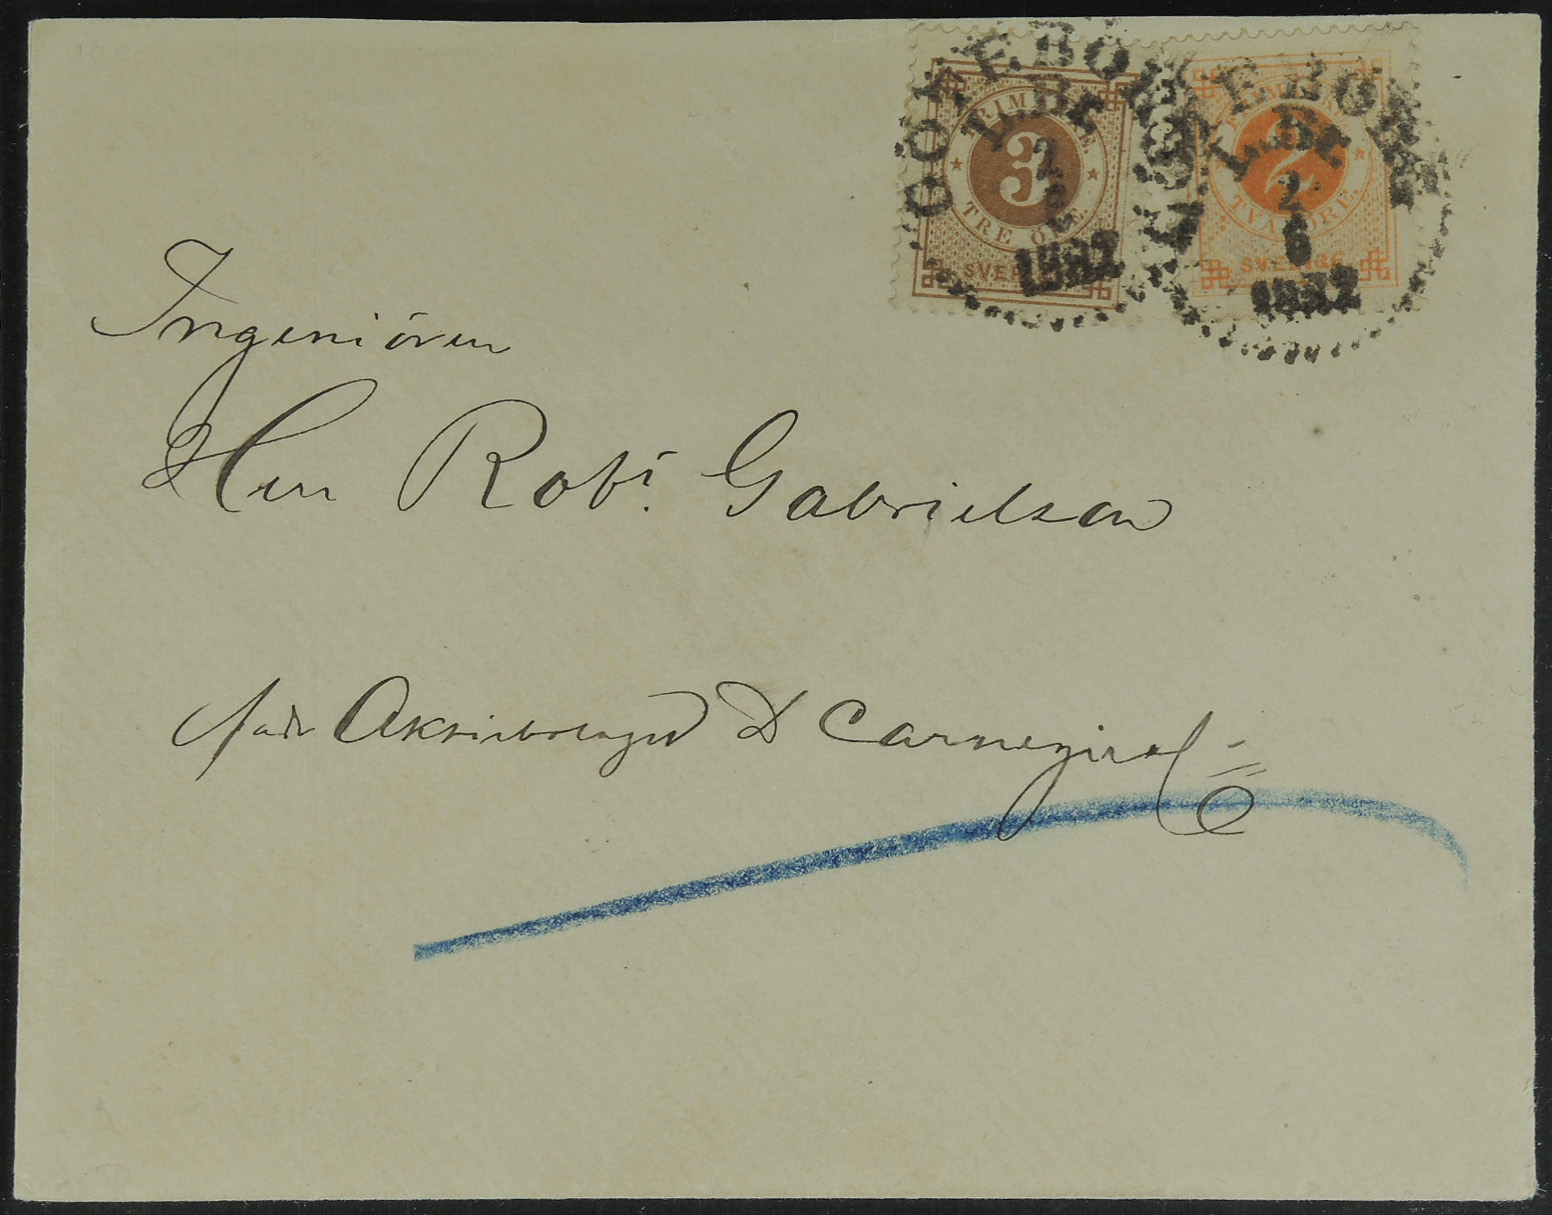 GÖTEBORG
L.Br.
2
6
1892
FRIMÄRKE
3
TRE ÖRE
SVERIGE
GÖTEBORG
L.Br.
2
6
1892
FRIMÄRKE
2
TVÅ ÖRE
SVERIGE
Ingeniören
Herr Robt. Gabrielson
Aktiebolaget D Carnegie & Co